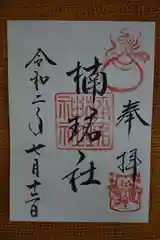 奉拝
楠珺社
令和二年七月十二日